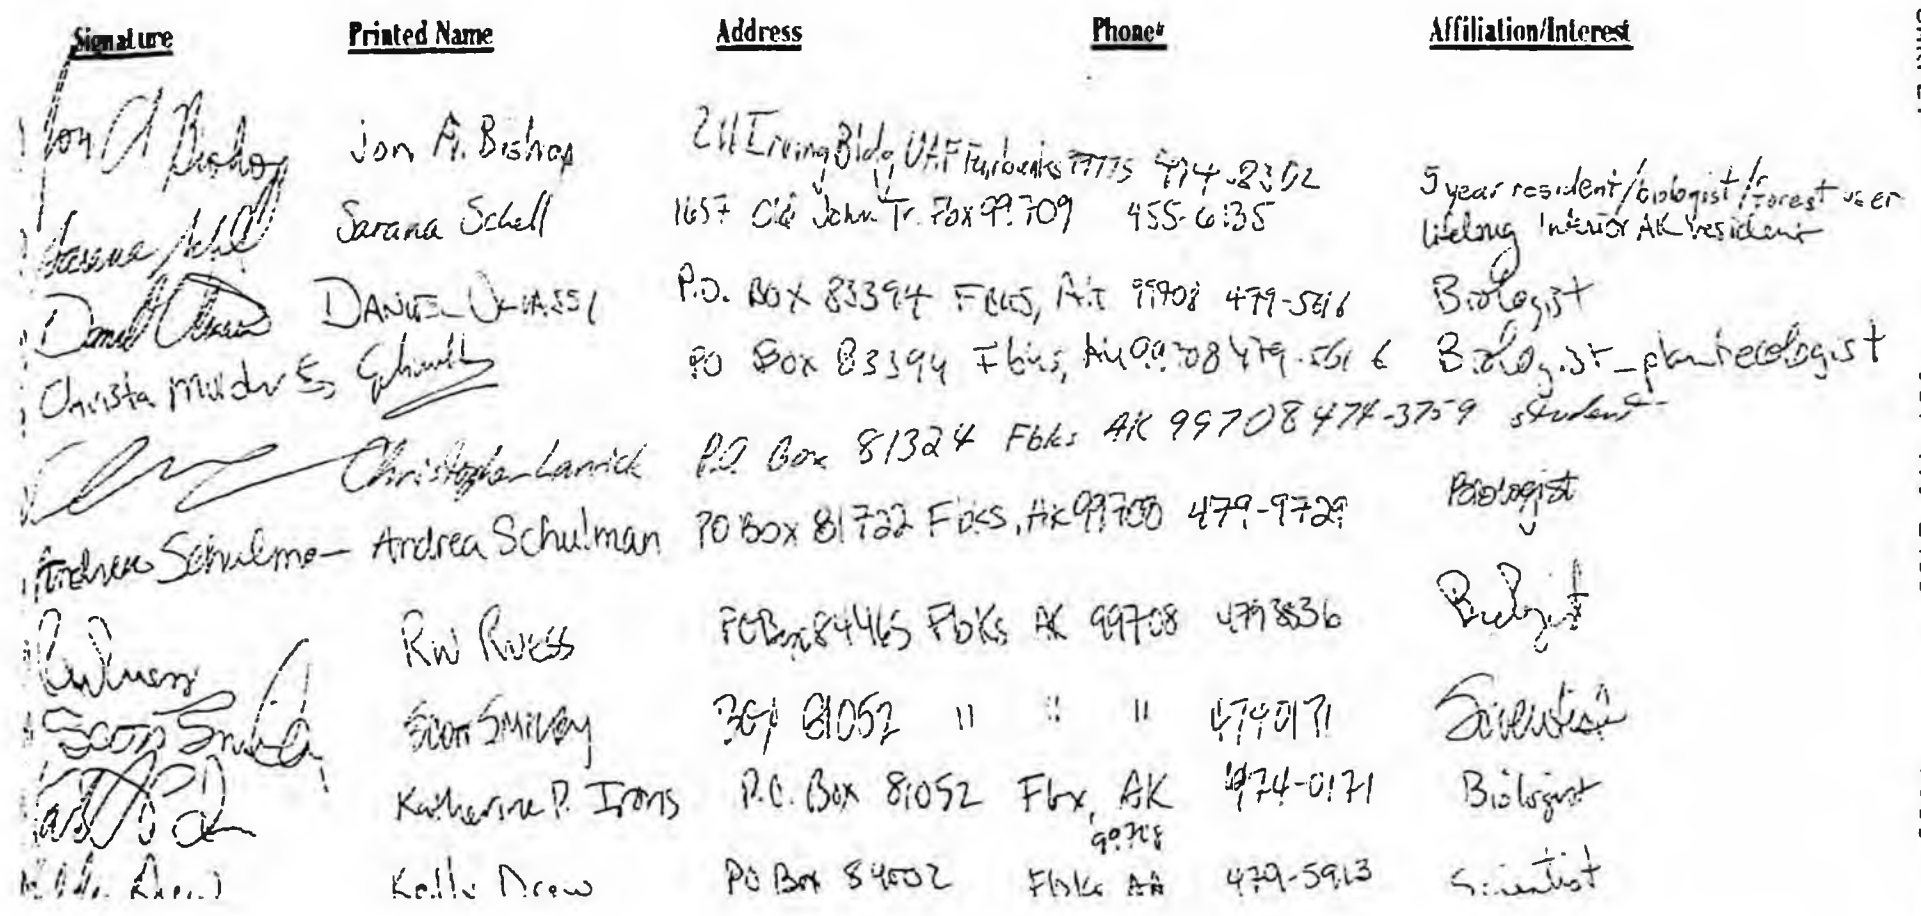 Signature Printed Name Address Phone# Affiliation/Interest
Jon A Bishop Jon A. Bishop 211 Irving Bldg UAF Fairbanks 99775 474-8302 5 year resident/biologist/forest user
Sarana Schell Sarana Schell 1657 Old John Tr. Fbx 99709 455-6135 lifelong Interior AK resident
Daniel DANIEL P.O. BOX 83394 FBKS, AK 99708 479-5616 Biologist
Christa Mulder PO Box 83394 Fbks, AK 99708 479-5616 Biologist - plant ecologist
Christopher Larrick P.O. Box 81324 Fbks AK 99708 474-3759 student
Andrea Schulman Andrea Schulman PO Box 81722 Fbks, AK 99708 479-9729 Biologist
RW Ruess RW Ruess PO Box 84465 Fbks AK 99708 4798836 Biologist
Scott Smiley Scott Smiley Box 81052 " " " 4740171 Scientist
Katherine P. Irons P.O. Box 81052 Fbx, AK 474-0171 Biologist
99708
Kelly Drew PO Box 84002 Fbks AK 479-5913 Scientist